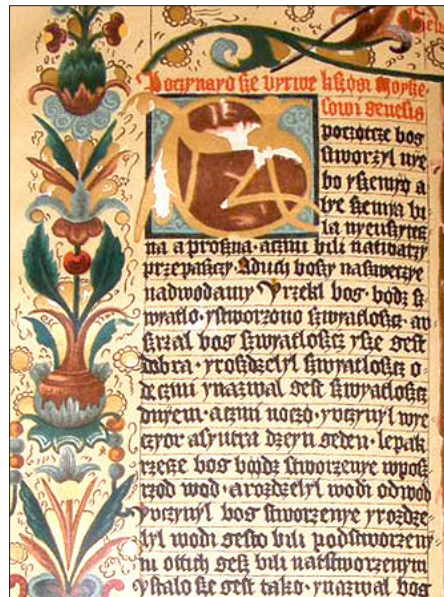 Poczynayo sze pyrwe kszøgi Moyże-
szowi genesis
poczøtcze bog
stworzyl nye
bo y szemyø a
lye szemya bi
la nyeuszytec
na a proszna · a czmi bili na twarzy
przepasczy · A duch boszy naszweczye
nad wodamy Y rzekl bog · bødz sz
wyatlo · y stworzono szwyatloszcz · a u
szrzal bog szwyatloszcz ysze gest
dobra · y rozdzelyl szwyatloszcz o
de czmi y nazwal gest szwyatloszcz
dnyem · a czmi noczø · y uczynyl wye
czyor a s yutra dzen geden · lepak
rzecze bog bøødz stworzenye wposz
rzod wod · a rozdzelyl wodi od wod
Y uczynyl bog stworzenye y rozdze
lyl wodi gesto bili pod stworzeny
m ottich gesz bili nad stworzenym
Y stalo sze gest tako · y nazwal bog